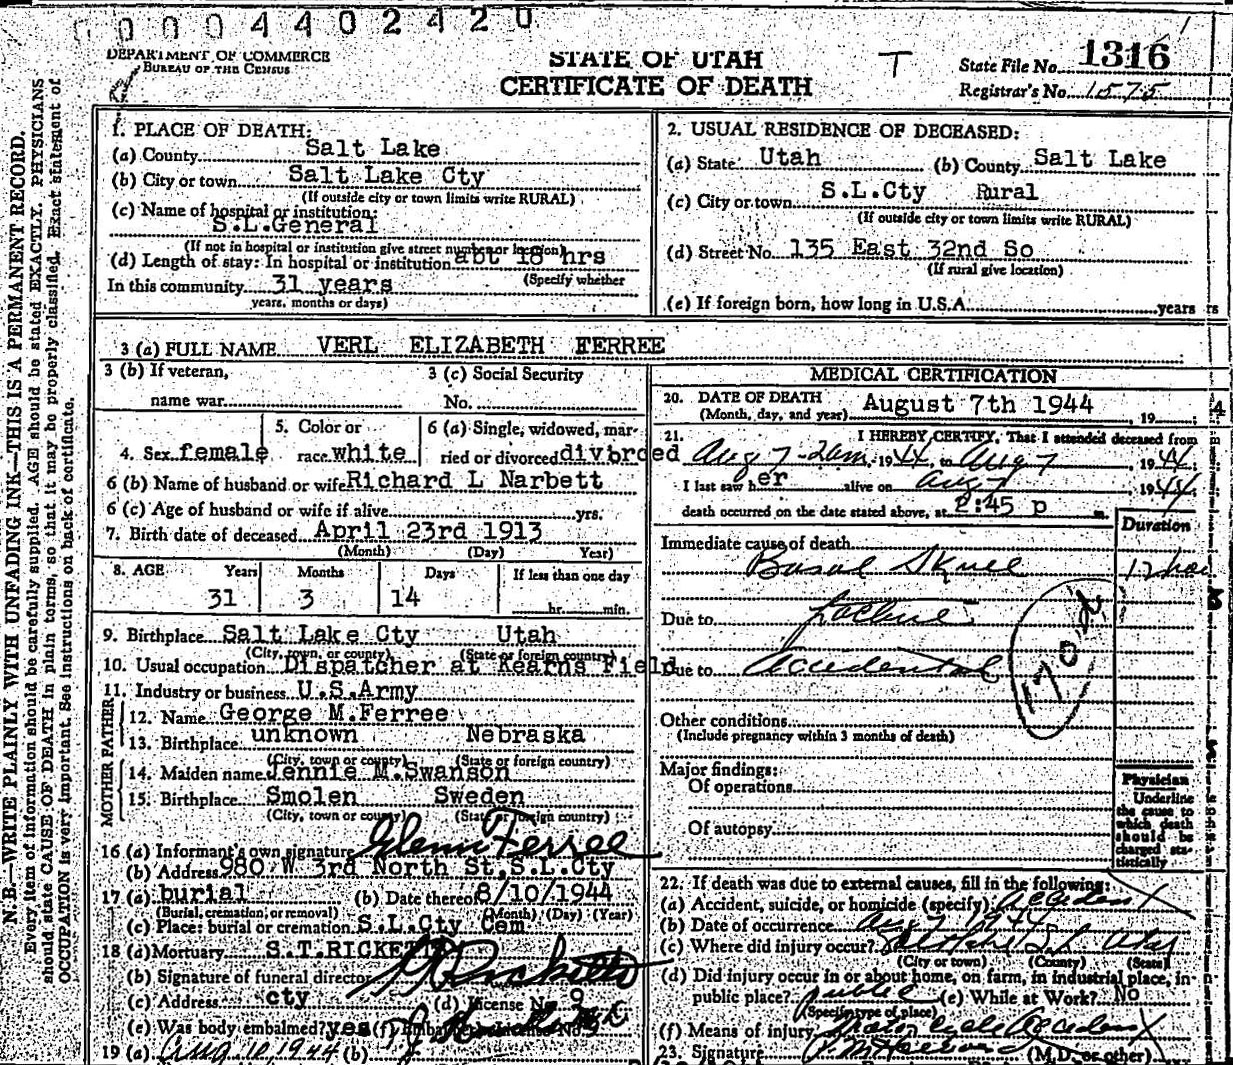 0004402420
DEPARTMENT OF COMMERCE
BUREAU OF THE CENSUS
STATE OF UTAH
CERTIFICATE OF DEATH
T
State File No. 1316
Registrar's No. 1575
N.B.—WRITE PLAINLY WITH UNFADING INK—THIS IS A PERMANENT RECORD.
Every item of information should be carefully supplied. AGE should be stated EXACTLY. PHYSICIANS
should state CAUSE OF DEATH in plain terms, so that it may be properly classified. Exact statement of
OCCUPATION is very important. See instructions on back of certificate.
1. PLACE OF DEATH:
(a) County Salt Lake
(b) City or town Salt Lake Cty
(If outside city or town limits write RURAL)
(c) Name of hospital or institution:
S.L.General
(If not in hospital or institution give street number or location)
(d) Length of stay: In hospital or institution abt 18 hrs
(Specify whether
In this community 31 years
years, months or days)
2. USUAL RESIDENCE OF DECEASED:
(a) State Utah (b) County Salt Lake
(c) City or town S.L.Cty Rural
(If outside city or town limits write RURAL)
(d) Street No. 135 East 32nd So
(If rural give location)
(e) If foreign born, how long in U.S.A. years
3 (a) FULL NAME VERL ELIZABETH FERREE
3 (b) If veteran,
name war
3 (c) Social Security
No.
4. Sex female
5. Color or
race white
6 (a) Single, widowed, mar-
ried or divorced divorced
6 (b) Name of husband or wife Richard L Narbett
6 (c) Age of husband or wife if alive yrs.
7. Birth date of deceased April 23rd 1913
(Month) (Day) Year)
8. AGE Years Months Days If less than one day
31 3 14 hr. min.
9. Birthplace Salt Lake Cty Utah
(City, town, or county) (State or foreign country)
10. Usual occupation Dispatcher at Kearns Field
11. Industry or business U.S.Army
FATHER
12. Name George M.Ferree
13. Birthplace unknown Nebraska
(City, town or county) (State or foreign country)
MOTHER
14. Maiden name Jennie M.Swanson
15. Birthplace Smolen Sweden
(City, town or county) (State or foreign country)
16 (a) Informant's own signature Glenn Ferree
(b) Address 980 W 3rd North St.S.L.Cty
17 (a) burial (b) Date thereof 8/10/1944
(Burial, cremation, or removal) (Month) (Day) (Year)
(c) Place: burial or cremation S.L.Cty Cem
18 (a) Mortuary S.T.RICKETT
(b) Signature of funeral director
(c) Address cty (d) License No. 9
(e) Was body embalmed? yes (f)
19 (a) Aug 10, 1944 (b)
MEDICAL CERTIFICATION
20. DATE OF DEATH
(Month, day, and year) August 7th 1944, 19 4
21. I HEREBY CERTIFY, That I attended deceased from
Aug 7-2am, 1944, to Aug 7, 1944
I last saw her alive on Aug 7, 1944
death occurred on the date stated above, at 2:45 p m.
Duration
Immediate cause of death
Basal Skull
Due to
Due to Accidental
170d
Other conditions
(Include pregnancy within 3 months of death)
Major findings:
Of operations
Of autopsy
Physician
Underline
the cause to
which death
should be
charged sta-
tistically
22. If death was due to external causes, fill in the following:
(a) Accident, suicide, or homicide (specify) Accident
(b) Date of occurrence Aug 7 1944
(c) Where did injury occur?
(City or town) (County) (State)
(d) Did injury occur in or about home, on farm, in industrial place, in
public place? public (e) While at Work? No
(Specify type of place)
(f) Means of injury Motor cycle Accident
23. Signature (M.D. or other)